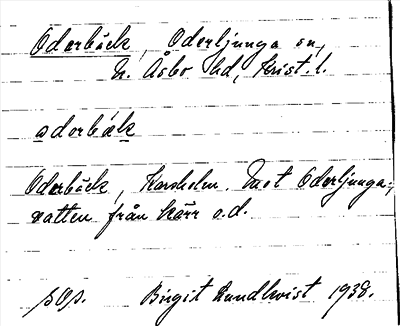 Oderbäck, Oderljunga sn,
N. Åsbo hd, Krist. l.
oderbäk
Oderbäck, Karsholm. Mot Oderljunga:,
vatten från kärr o.d.
sOs. Birgit Lundkvist 1938.